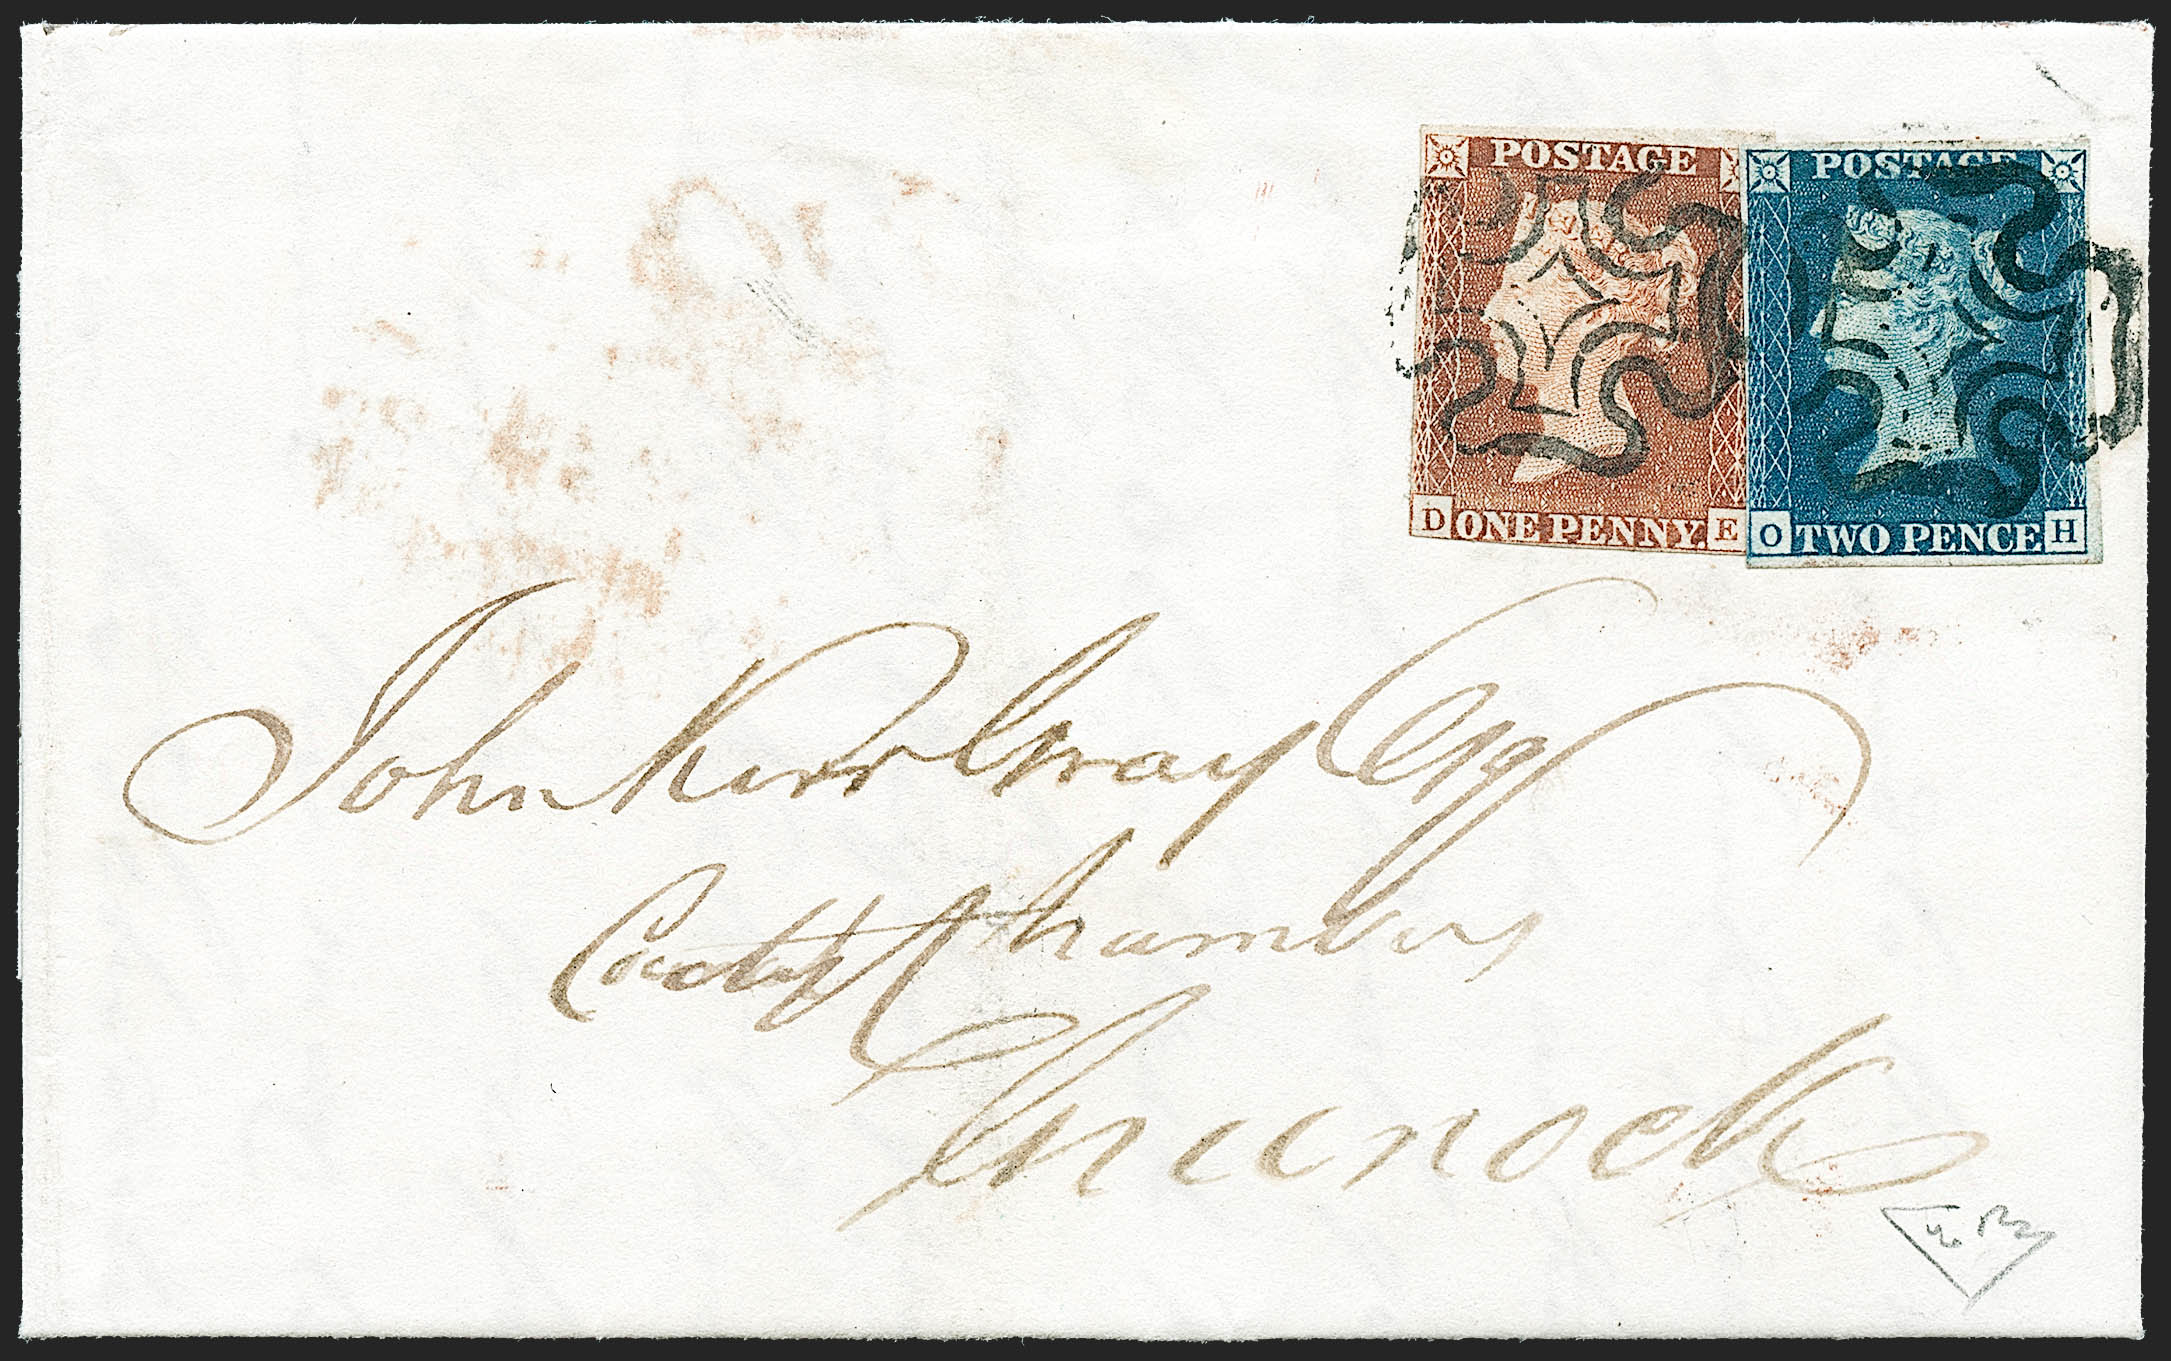 POSTAGE
D ONE PENNY. E
POSTAGE
O TWO PENCE H
John Kerr Gray Esq
County Chambers
Greenock